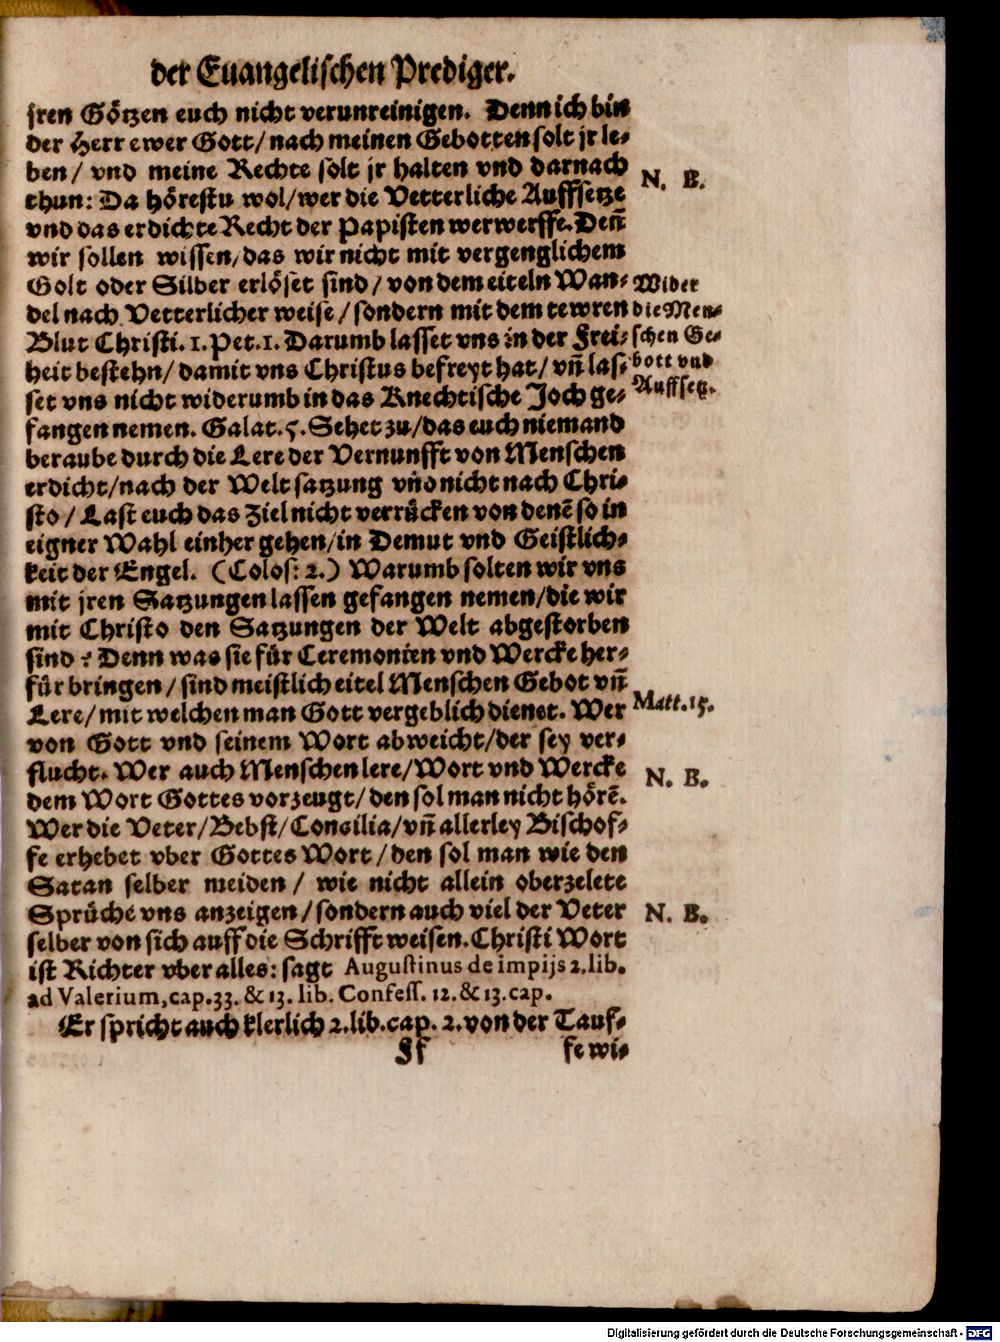 der Euangelischen Prediger.
jren Götzen euch nicht verunreinigen. Denn ich bin
der Herr ewer Gott/ nach meinen Gebotten solt jr le-
ben/ vnd meine Rechte solt jr halten vnd darnach
thun: Da hörestu wol/wer die Vetterliche Auffsetze
vnd das erdichte Recht der Papisten werwerffe. Deñ
wir sollen wissen/das wir nicht mit vergenglichem
Golt oder Silber erlöset sind/ von dem eiteln Wan-
del nach Vetterlicher weise/sondern mit dem tewren
Blut Christi. 1. Pet. 1. Darumb lasset vns in der Frei-
heit bestehn/ damit vns Christus befreyt hat/ vñ las-
set vns nicht widerumb in das Knechtische Joch ge-
fangen nemen. Galat. 5. Sehet zu/das euch niemand
beraube durch die Lere der Vernunfft von Menschen
erdicht/nach der Welt satzung vnd nicht nach Chri-
sto/ Last euch das Ziel nicht verrücken von denẽ so in
eigner Wahl einher gehen/in Demut vnd Geistlich-
keit der Engel. (Colos: 2.) Warumb solten wir vns
mit jren Satzungen lassen gefangen nemen/die wir
mit Christo den Satzungen der Welt abgestorben
sind? Denn was sie für Ceremonien vnd Wercke her-
für bringen/ sind meistlich eitel Menschen Gebot vñ
Lere/ mit welchen man Gott vergeblich dienet. Wer
von Gott vnd seinem Wort abweicht/der sey ver-
flucht. Wer auch Menschen lere/Wort vnd Wercke
dem Wort Gottes vorzeugt/den sol man nicht hörẽ.
Wer die Veter/Bebst/Consilia/vñ allerley Bischof-
fe erhebet vber Gottes Wort/den sol man wie den
Satan selber meiden/ wie nicht allein oberzelete
Sprüche vns anzeigen/sondern auch viel der Veter
selber von sich auff die Schrifft weisen. Christi Wort
ist Richter vber alles: sagt Augustinus de impijs 2. lib.
ad Valerium, cap. 33. & 13. lib. Confess. 12. & 13. cap.
Er spricht auch klerlich 2. lib. cap. 2. von der Tauf-
Ff fe wi-
N. B.
Wider
die Men-
schen Ge-
bott vnd
Auffsetz.
Matt. 15.
N. B.
N. B.
Digitalisierung gefördert durch die Deutsche Forschungsgemeinschaft - DFG